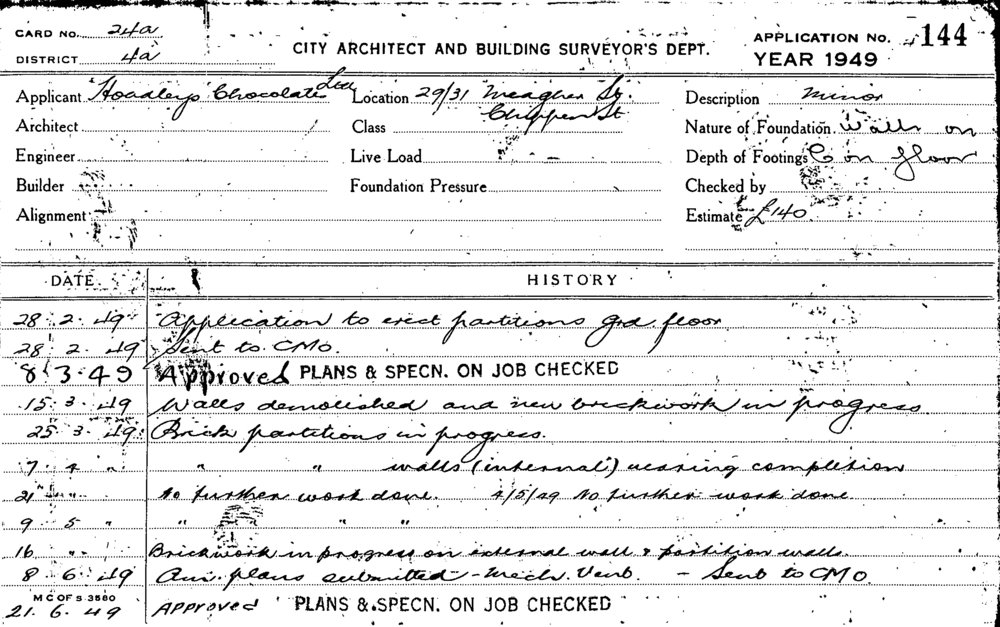 CARD No. 24a
DISTRICT 4a
CITY ARCHITECT AND BUILDING SURVEYOR'S DEPT.
APPLICATION No. 144
YEAR 1949
Applicant Hoadleys Chocolate Ltd Location 29/31 Meagher St. Description Minor
Chippen St
Architect Class Nature of Foundation Walls on
Engineer Live Load - Depth of Footings C on floor
Builder Foundation Pressure Checked by
Alignment Estimate £140
DATE HISTORY
28. 2. 49 Application to erect partitions grd. floor
28. 2. 49 Sent to CMO.
8 3 49 Approved PLANS & SPECN. ON JOB CHECKED
15. 3. 49 Walls demolished and new brickwork in progress.
25. 3. 49 Brick partitions in progress.
7 4 " " " walls (internal) nearing completion
21 " " No further work done. 4/5/49 No further work done.
9 5 " " " " "
16 " " Brickwork in progress on external wall & partition walls.
8 6 49 Am. plans submitted - Mech. Vent. - Sent to CMO.
M C OF S 3580
21. 6. 49 Approved PLANS & SPECN. ON JOB CHECKED